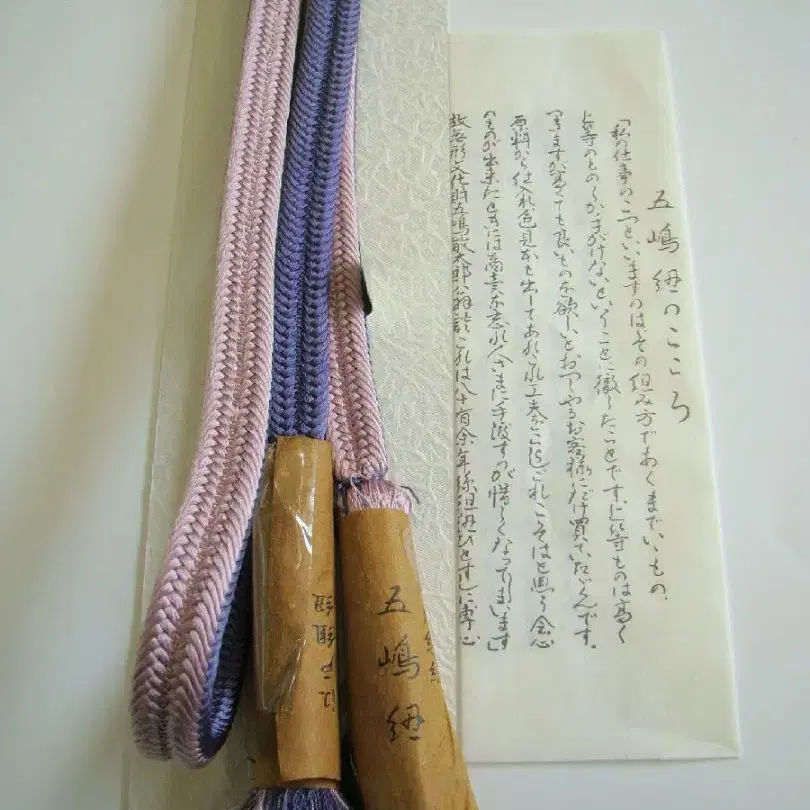 五嶋紐のこころ
「私の仕事のこつといいますのは、その組み方であくまでいいもの、
上等のものしか手がけないということに徹したことです。上等ものは高く
つきますが高くても良いものを欲しいとおっしゃるお客様にだけ買っていただくんです。
原料から仕入れ色見本も出してあれこれ工夫をこらしこれこそはと思う会心
のものが出来たときには商売を忘れ人さまに手渡すのが惜しくなってしまいます」
故無形文化財五嶋敏太郎 これは八十有余年 組紐ひとすじに専心
五嶋紐